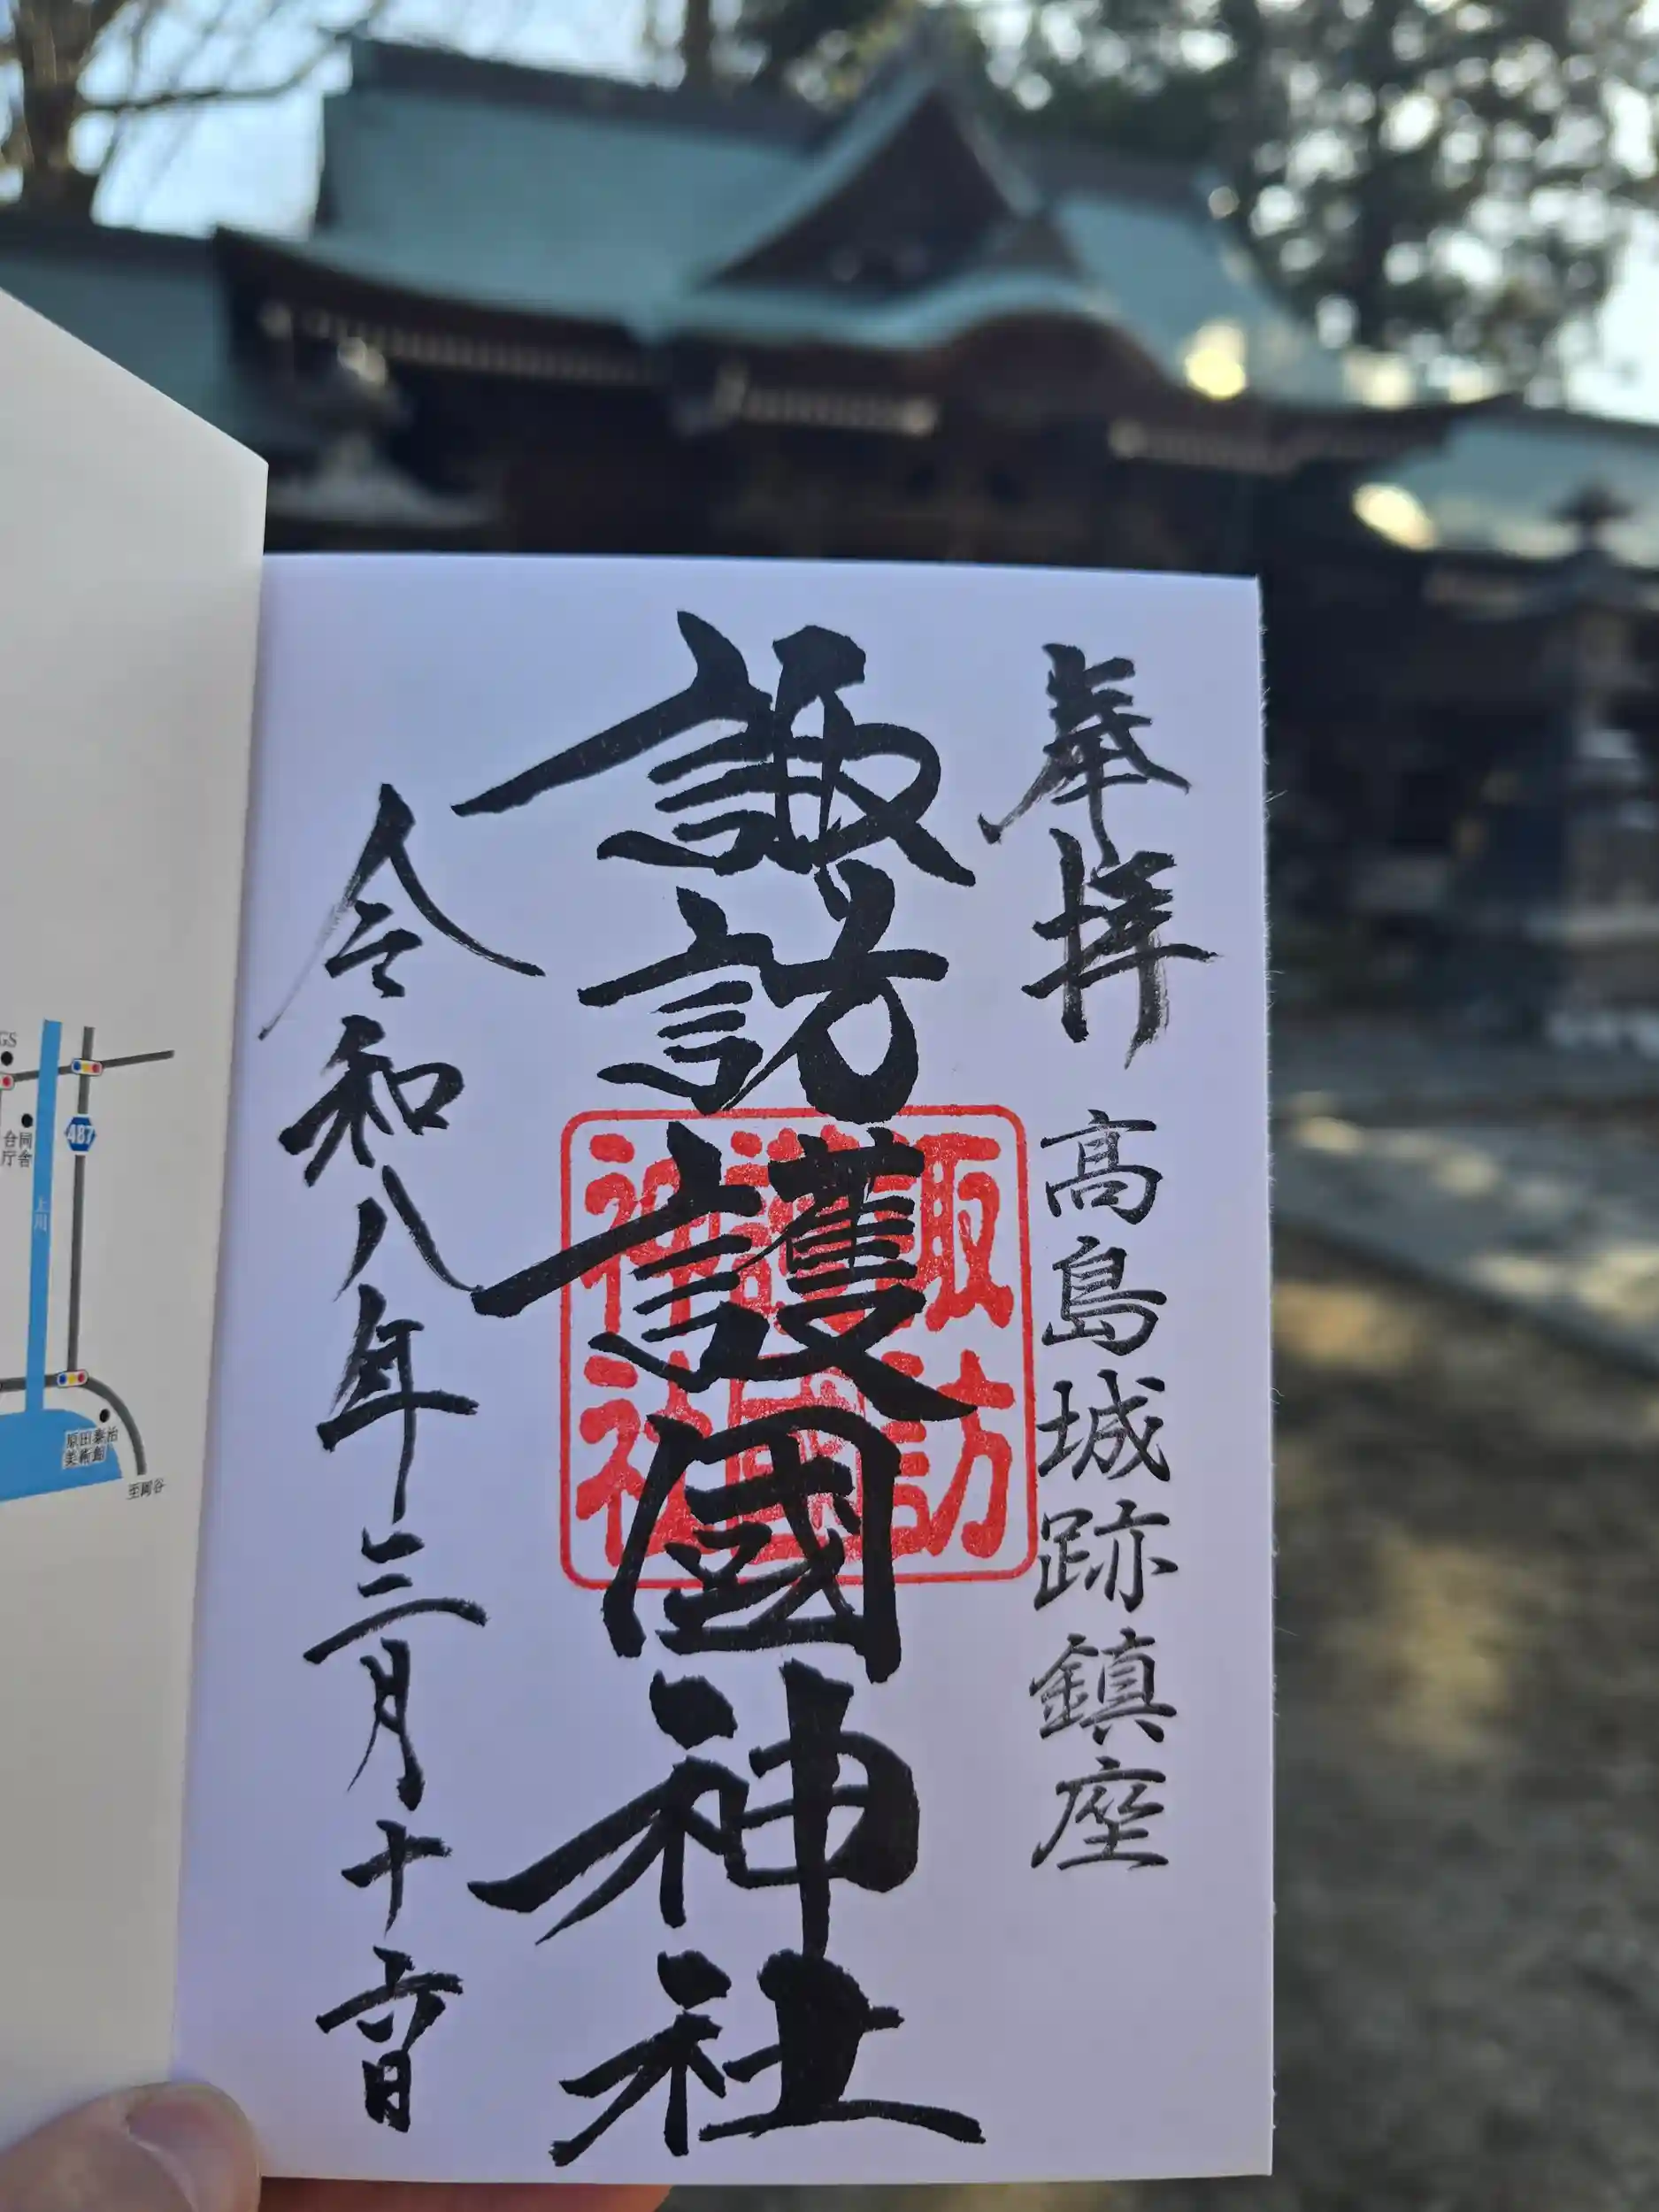 奉拝 高島城跡鎮座
諏訪護國神社
諏訪
護國
神社
令和八年三月十六日
GS
合同
庁舎
487
上川
原田泰治
美術館
至岡谷